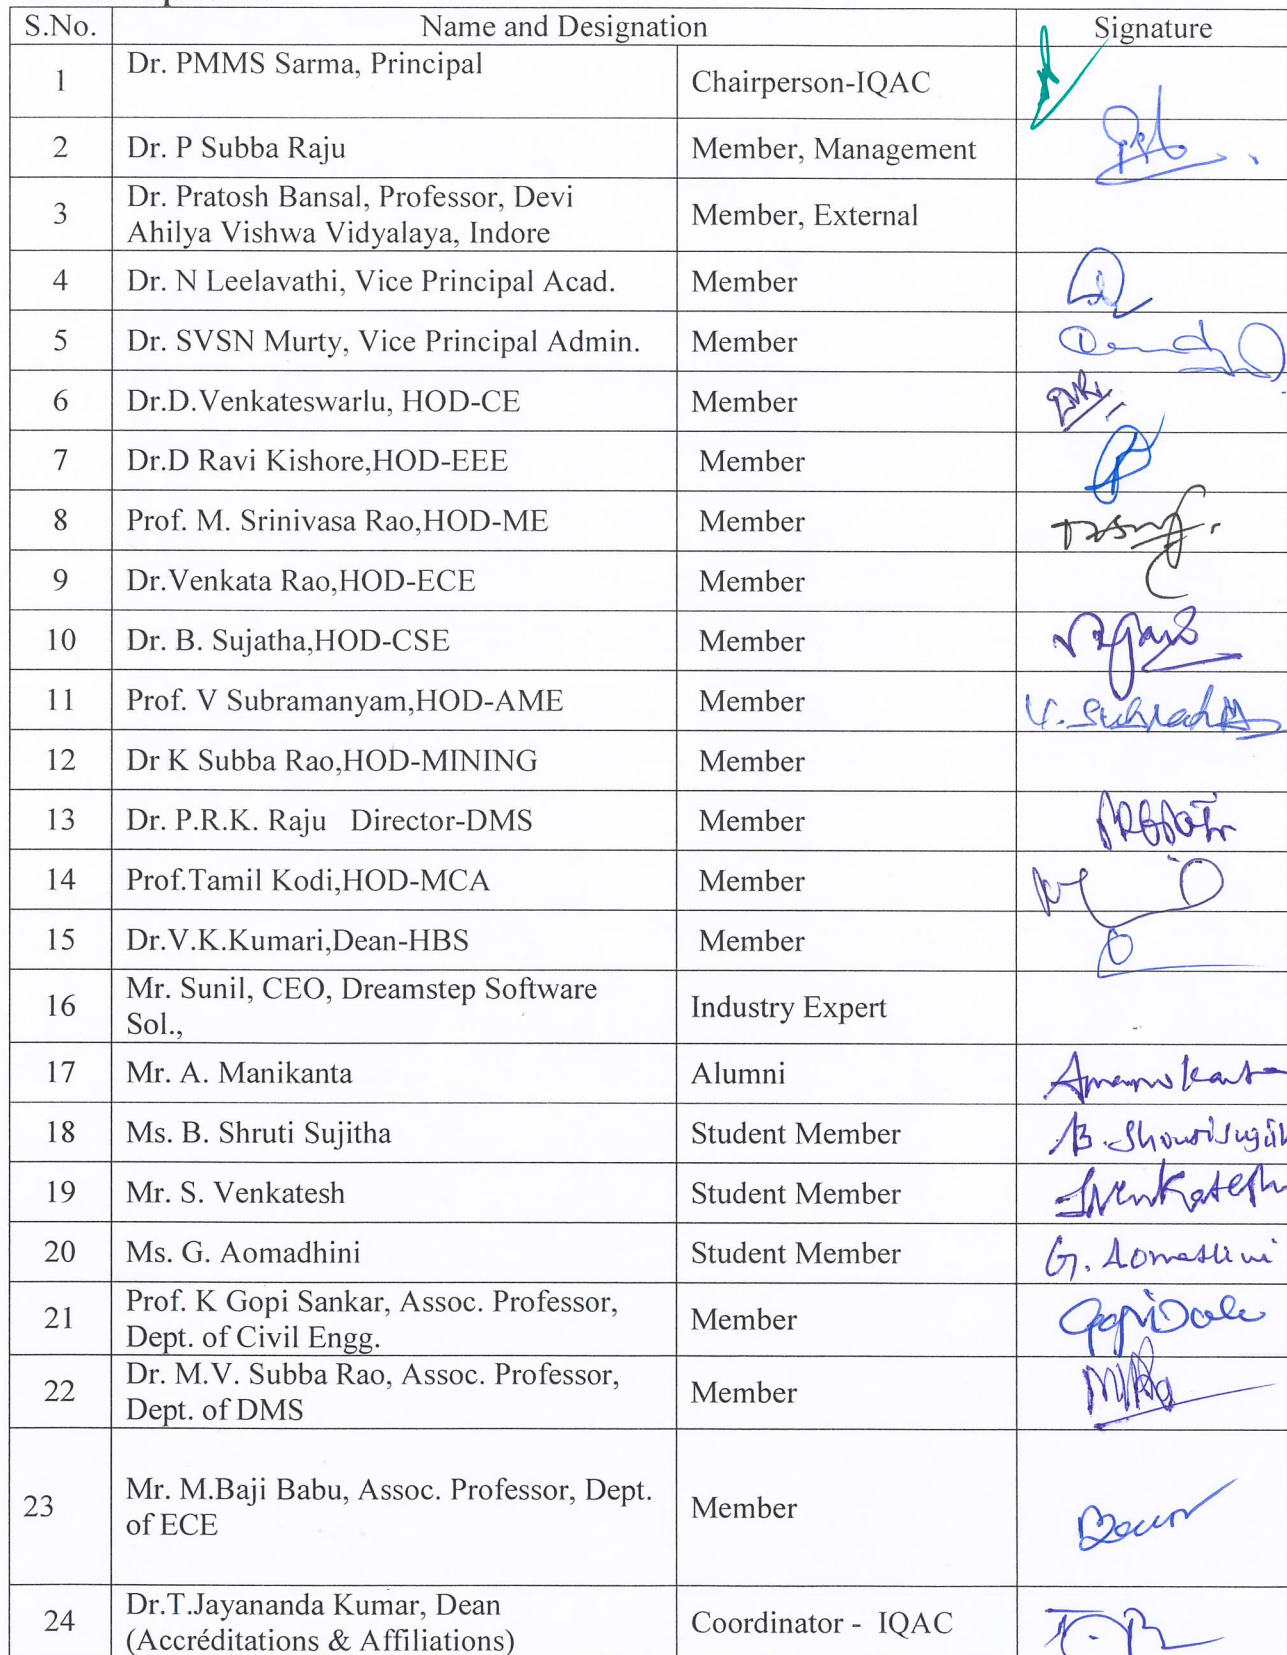 S.No. Name and Designation Signature
1 Dr. PMMS Sarma, Principal Chairperson-IQAC
2 Dr. P Subba Raju Member, Management
3 Dr. Pratosh Bansal, Professor, Devi Member, External
Ahilya Vishwa Vidyalaya, Indore
4 Dr. N Leelavathi, Vice Principal Acad. Member
5 Dr. SVSN Murty, Vice Principal Admin. Member
6 Dr.D.Venkateswarlu, HOD-CE Member
7 Dr.D Ravi Kishore,HOD-EEE Member
8 Prof. M. Srinivasa Rao,HOD-ME Member
9 Dr.Venkata Rao,HOD-ECE Member
10 Dr. B. Sujatha,HOD-CSE Member
11 Prof. V Subramanyam,HOD-AME Member
12 Dr K Subba Rao,HOD-MINING Member
13 Dr. P.R.K. Raju Director-DMS Member
14 Prof.Tamil Kodi,HOD-MCA Member
15 Dr.V.K.Kumari,Dean-HBS Member
16 Mr. Sunil, CEO, Dreamstep Software Industry Expert
Sol.,
17 Mr. A. Manikanta Alumni
18 Ms. B. Shruti Sujitha Student Member
19 Mr. S. Venkatesh Student Member SVenkatesh
20 Ms. G. Aomadhini Student Member
21 Prof. K Gopi Sankar, Assoc. Professor, Member
Dept. of Civil Engg.
22 Dr. M.V. Subba Rao, Assoc. Professor, Member
Dept. of DMS
23 Mr. M.Baji Babu, Assoc. Professor, Dept. Member
of ECE
24 Dr.T.Jayananda Kumar, Dean Coordinator - IQAC
(Accréditations & Affiliations)